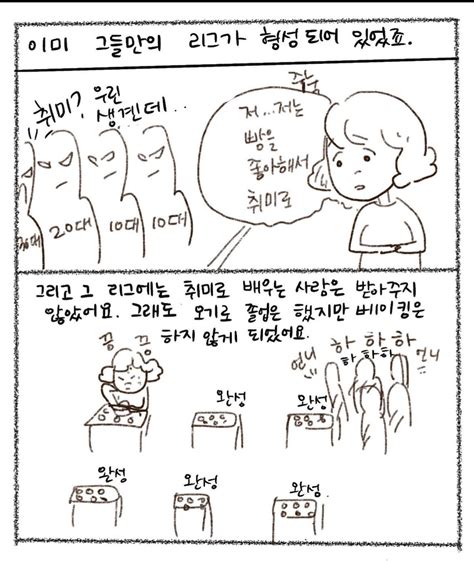 이미 그들만의 리그가 형성 되어 있었죠.
취미? 우린
생곈데..
주눅
저...저는
빵을
좋아해서
취미로
20대
10대
10대
그리고 그 리그에는 취미로 배우는 사람은 받아주지
않았어요. 그래도 오기로 졸업은 했지만 베이킹은
하지 않게 되었어요.
끙 끙
언니
하 하 하
하 하 하
언니
완성
완성
완성
완성
완성